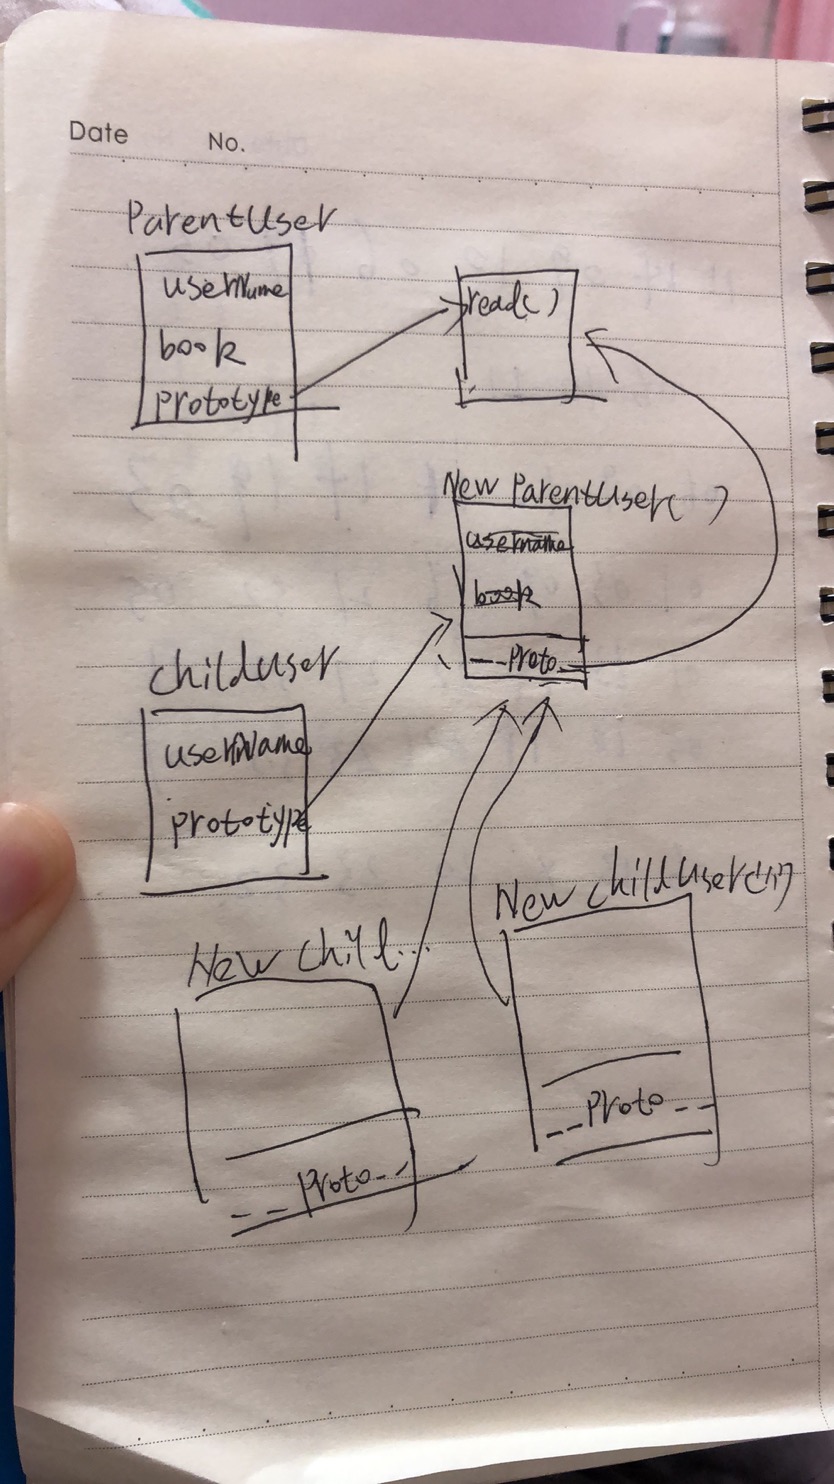 Date No.
ParentUser
userName
book
prototype
read()
New ParentUser( )
username
book
--proto--
childUser
userName
prototype
New child...
--proto--
New childUser()
--proto--